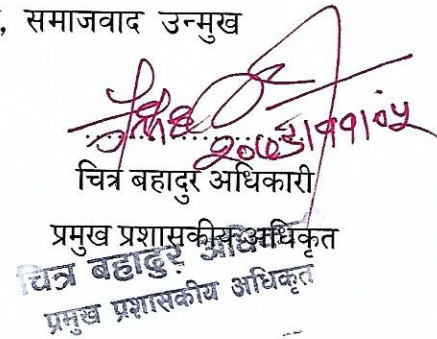 , समाजवाद उन्मुख
चित्र बहादुर अधिकारी
प्रमुख प्रशासकीय अधिकृत
चित्र बहादुर अधिकारी
प्रमुख प्रशासकीय अधिकृत